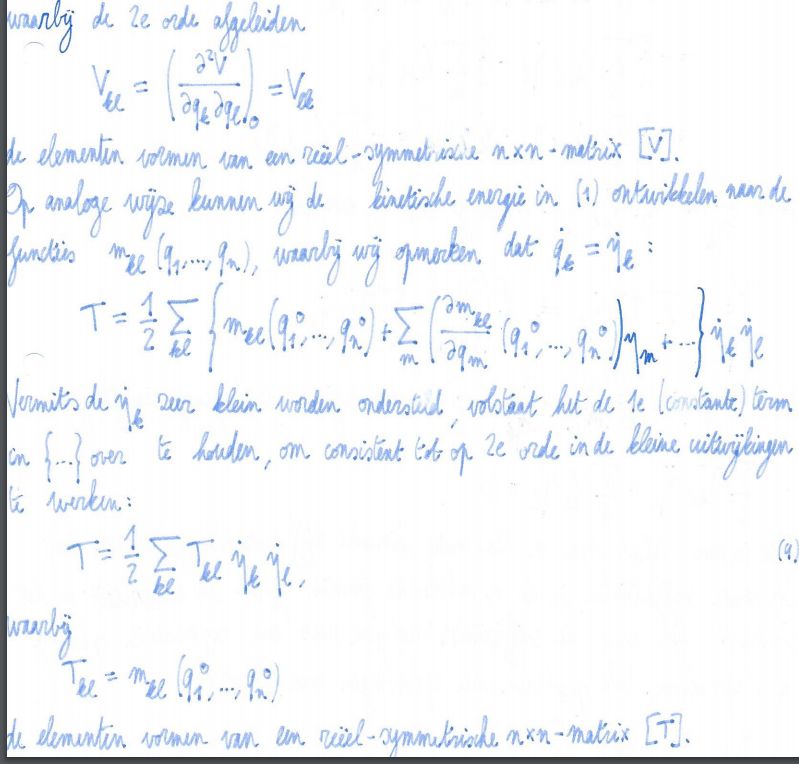 waarbij de 2e orde afgeleiden
V_{kl} = (∂²V / ∂q_k ∂q_l)_0 = V_{lk}
de elementen vormen van een reëel-symmetrische n×n-matrix [V].
Op analoge wijze kunnen wij de kinetische energie in (1) ontwikkelen naar de
functies m_{kl} (q_1,..., q_n), waarbij wij opmerken dat q̇_k = η̇_k :
T = 1/2 Σ_{kl} { m_{kl} (q_1^0,..., q_n^0) + Σ_m (∂m_{kl}/∂q_m (q_1^0,..., q_n^0)) η_m + ... } η̇_k η̇_l
Vermits de η̇_k zeer klein worden ondersteld, volstaat het de 1e (constante) term
in {...} over te houden, om consistent tot op 2e orde in de kleine uitwijkingen
te werken:
T = 1/2 Σ_{kl} T_{kl} η̇_k η̇_l, (9)
waarbij
T_{kl} = m_{kl} (q_1^0,..., q_n^0)
de elementen vormen van een reëel-symmetrische n×n-matrix [T].